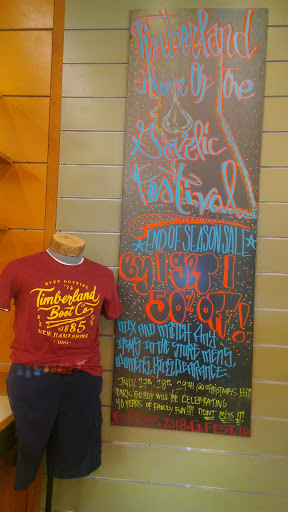 Timberland
Home Of The
Garlic
Festival
END OF SEASON SALE
Buy 1 get 1
50% OFF!
MIX AND MATCH Any
items In the store mens,
womens, Kids, clearance.
JULY 27th 28th 29th @ CHRISTMAS Hill
PARK GILROY WILL BE CELEBRATING
40 YEARS OF FAMILY FUN!!! DONT MISS IT
BEST OUTSIDE
Timberland
Boot Co.
1885
NEW HAMPSHIRE